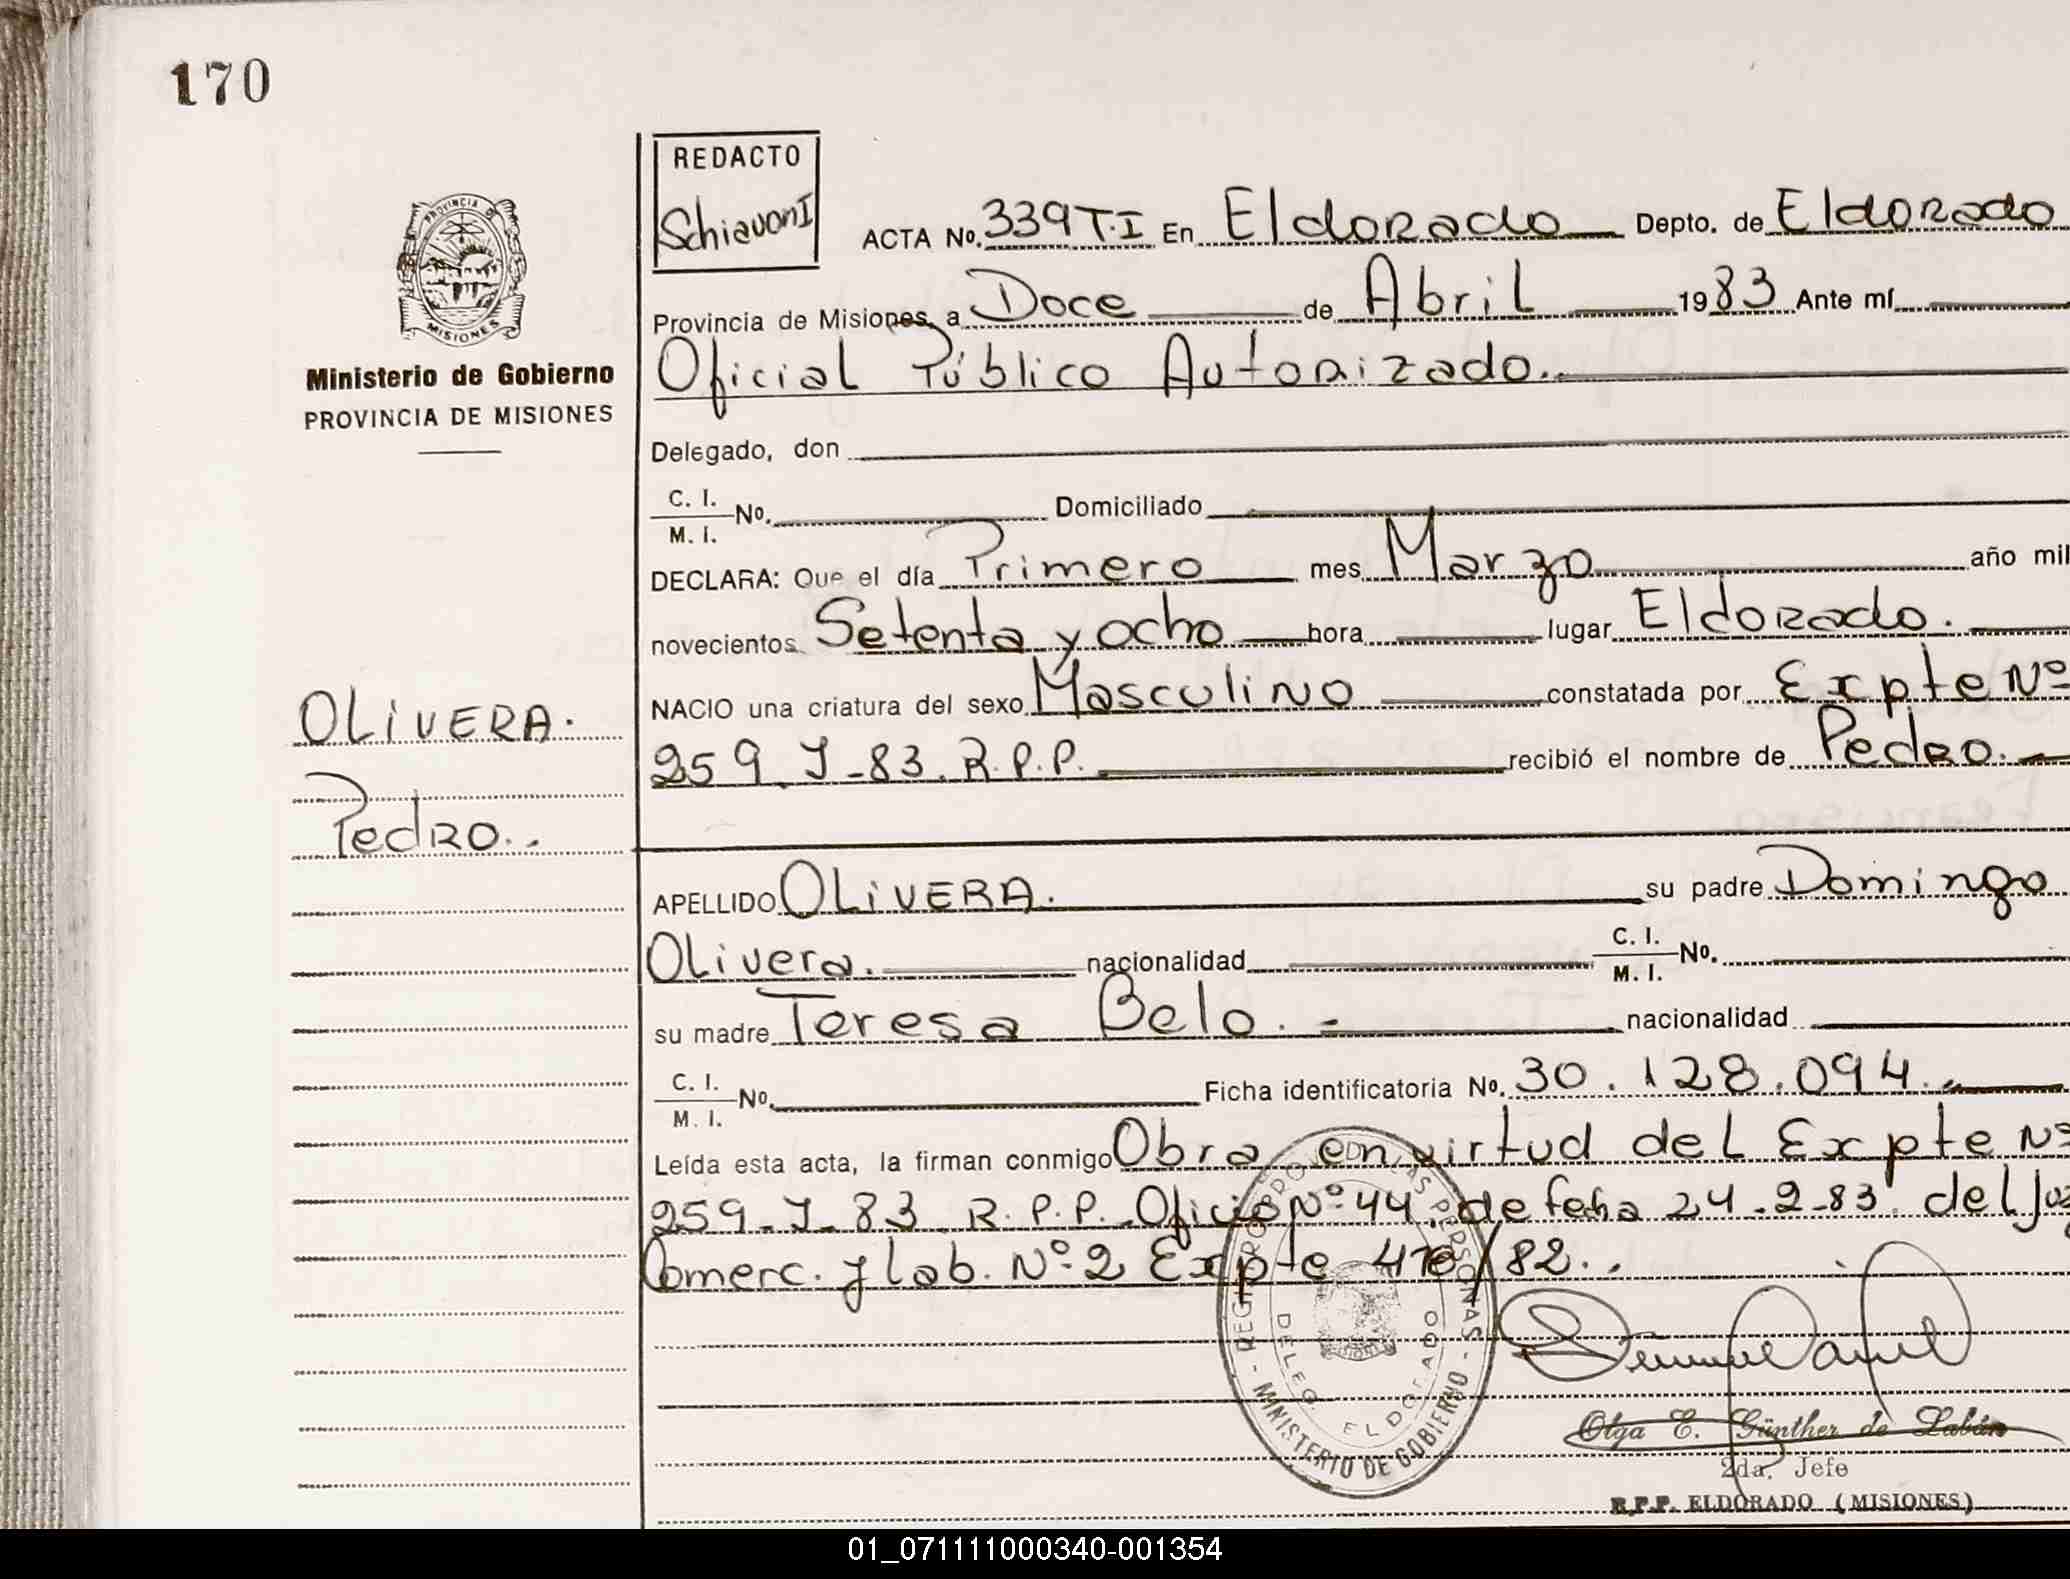 170
REDACTO
SchiavonI
ACTA No. 339 T.I En Eldorado Depto. de Eldorado
Provincia de Misiones, a Doce de Abril 1983 Ante mí
Oficial Público Autorizado.
Ministerio de Gobierno
PROVINCIA DE MISIONES
Delegado, don
C. I.
M. I. No. Domiciliado
DECLARA: Que el día Primero mes Marzo año mil
novecientos Setenta y ocho hora lugar Eldorado.
NACIO una criatura del sexo Masculino constatada por Expte Nº
259. J-83. R.P.P. recibió el nombre de Pedro.
OLIVERA.
Pedro..
APELLIDO OLIVERA. su padre Domingo
Olivera. nacionalidad C. I. M. I. No.
su madre Teresa Belo. - nacionalidad
C. I.
M. I. No. Ficha identificatoria No. 30.128.094.
Leída esta acta, la firman conmigo Obra en virtud del Expte Nº
259-J-83 R.P.P. Oficio Nº 44. de fecha 24-2-83 del Juz
Comerc. y lab. Nº 2 Expte /82..
REGISTRO PROV. DE LAS PERSONAS
DELEG. ELDORADO
- MINISTERIO DE GOBIERNO -
Olga E. Günther de Labán
2da. Jefe
R.P.P. ELDORADO (MISIONES)
01_071111000340-001354